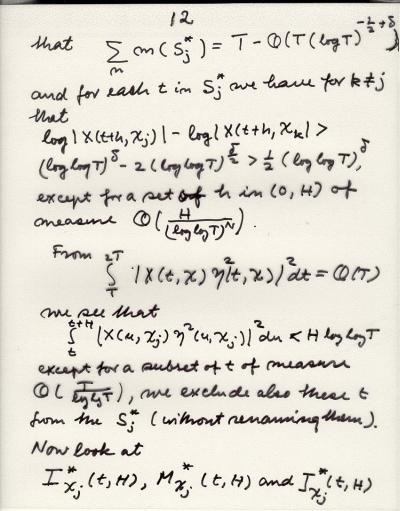 12
that ∑_n m(S_j^*) = T - O(T(log T)^{-1/2+δ})
and for each t in S_j^* we have for k≠j
that
log|X(t+h, χ_j)| - log|X(t+h, χ_k)| >
(log log T)^δ - 2(log log T)^{δ/2} > 1/2 (log log T)^δ,
except for a set of h in (0, H) of
measure O(H/(log log T)^N).
From
∫_T^{2T} |X(t,χ) η²(t,χ)|² dt = O(T)
we see that
∫_t^{t+H} |X(u, χ_j) η²(u, χ_j)|² du < H log log T
except for a subset of t of measure
O(T/log log T), we exclude also these t
from the S_j^* (without renaming them).
Now look at
I_{χ_j}^*(t,H), M_{χ_j}^*(t,H) and I_{χ_j}^*(t,H)